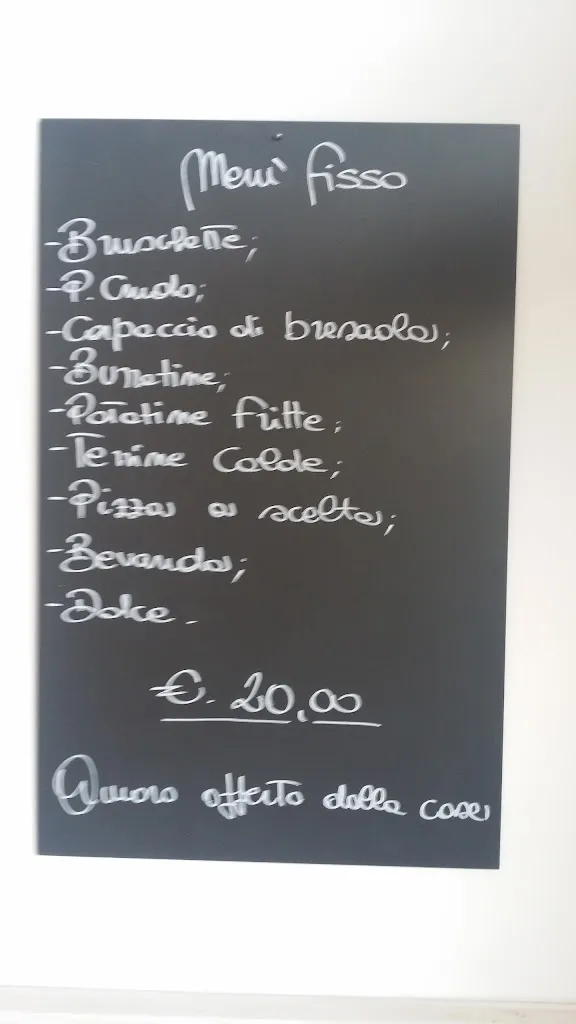 Menù fisso
-Bruschette;
-P. Crudo;
-Capaccio di bresaola;
-Burratine;
-Patatine fritte;
-Terrine Calde;
-Pizza a scelta;
-Bevanda;
-Dolce.
€. 20,00
Amaro offerto dalla casa